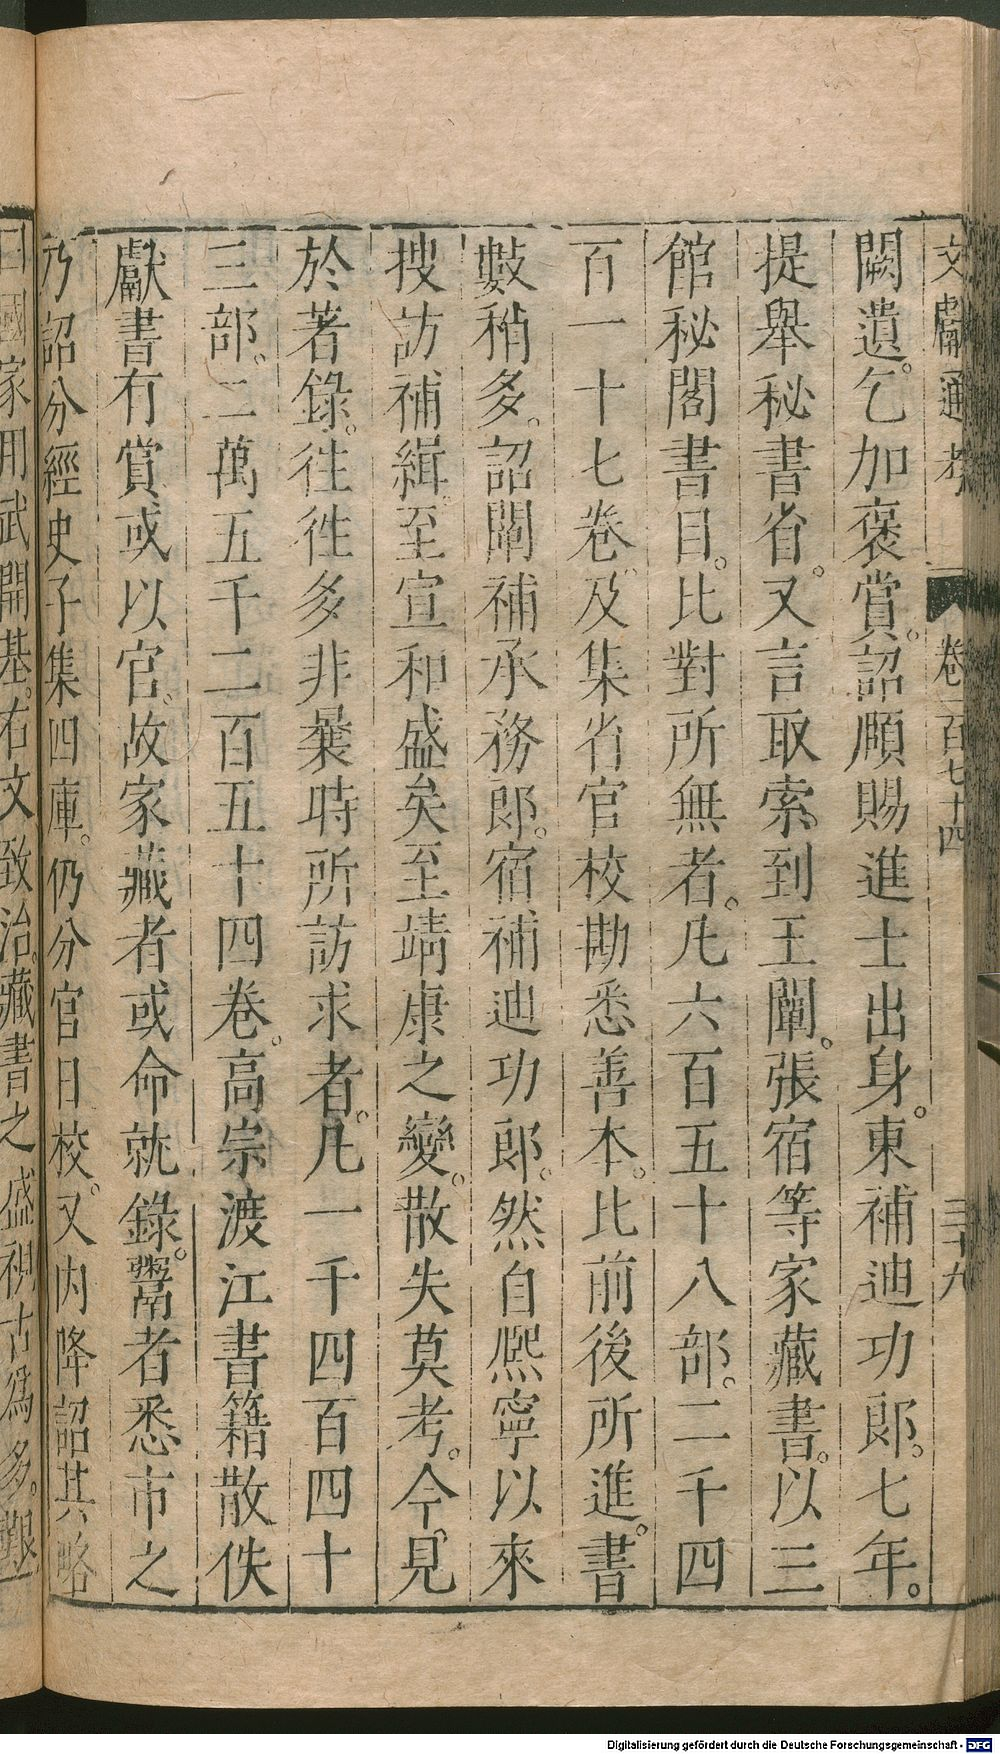 文獻通考　卷一百七十四　三十九
闕遺。乞加褒賞。詔頤賜進士出身。東補迪功郎。七年。
提舉秘書省。又言取索到王闡。張宿等家藏書。以三
館秘閣書目。比對所無者。凡六百五十八部。二千四
百一十七卷。及集省官校勘悉善本。比前後所進。書
數稍多。詔闡補承務郎。宿補迪功郎。然自熈寧以來
搜訪補緝。至宣和盛矣至靖康之變。散失莫考。今見
於著錄。徃徃多非曩時所訪求者。凡一千四百四十
三部。二萬五千二百五十四卷。高宗渡江書籍散佚
獻書有賞或以官。故家藏者或命就錄。鬻者悉市之
乃詔分經史子集四庫。仍分官日校。又內降詔其略
曰國家用武開基。右文致治。藏書之盛視古爲多。艱
Digitalisierung gefördert durch die Deutsche Forschungsgemeinschaft - DFG